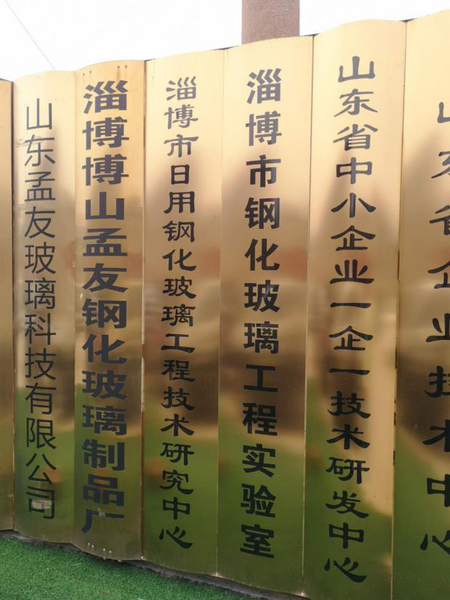 山东孟友玻璃科技有限公司
淄博博山孟友钢化玻璃制品厂
淄博市日用钢化玻璃工程技术研究中心
淄博市钢化玻璃工程实验室
山东省中小企业一企一技术研发中心
山东省企业技术中心